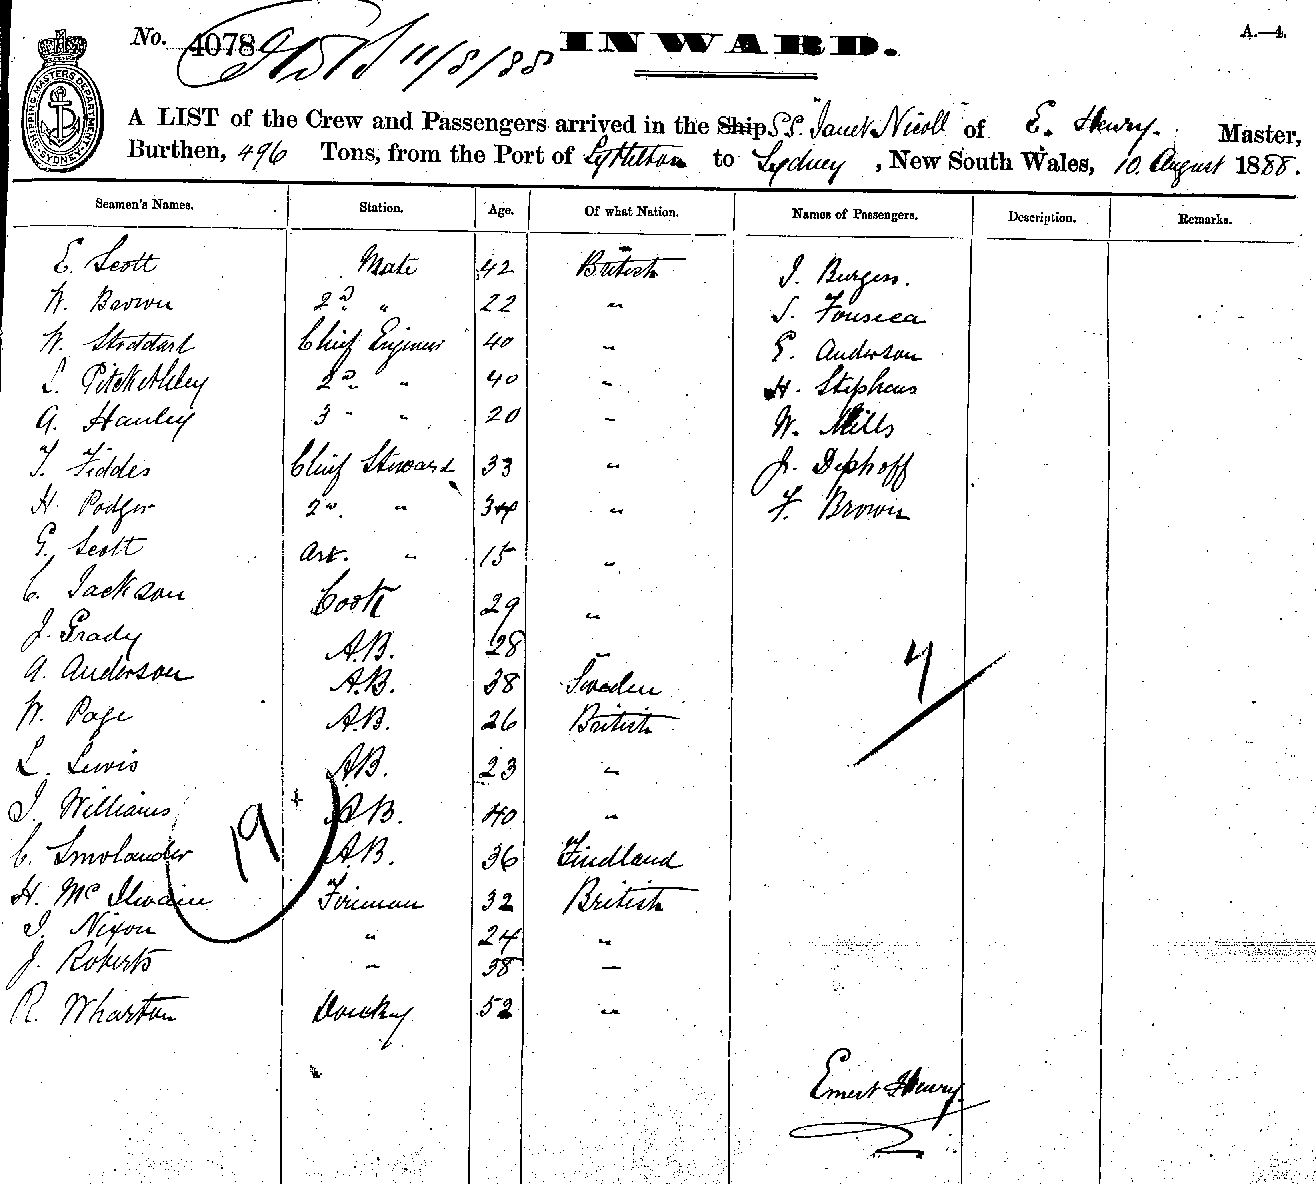 No. 4078 11/8/88 INWARD. A.—4.
SHIPPING MASTERS DEPARTMENT SYDNEY
A LIST of the Crew and Passengers arrived in the Ship S.S. "Janet Nicoll" of E. Henry. Master,
Burthen, 496 Tons, from the Port of Lyttelton to Sydney, New South Wales, 10 August 1888.
Seamen's Names. Station. Age. Of what Nation. Names of Passengers. Description. Remarks.
E. Scott Mate 42 British J. Burgess.
W. Brown 2d " 22 " S. Fonseca
W. Stoddart Chief Engineer 40 " E. Anderson
L. Pitkethley 2d " 40 " H. Stephens
A. Hanley 3 " " 20 " W. Mills
T. Fiddes Chief Steward 33 " J. Dephoff
H. Podger 2d. " 34 " F. Brown
G. Scott " 15 "
C. Jackson Cook 29 "
J. Grady A.B. 28 "
A. Anderson A.B. 38 Sweden
W. Page A.B. 26 British
L. Lewis A.B. 23 "
J. Williams A.B. 40 "
C. Smolander A.B. 36 Findland
H. McIlwain Fireman 32 British
J. Nixon " 24 "
J. Roberts " 38 "
R. Wharton Donkey 52 "
19
Ernest Henry